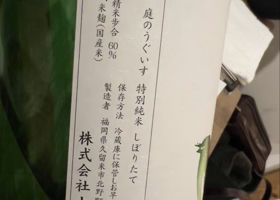 庭のうぐいす
特別純米 しぼりたて
保存方法 冷蔵庫に保管しお早
製造者 福岡県久留米市北野町
株式会社
精米歩合 60%
米麹(国産米)